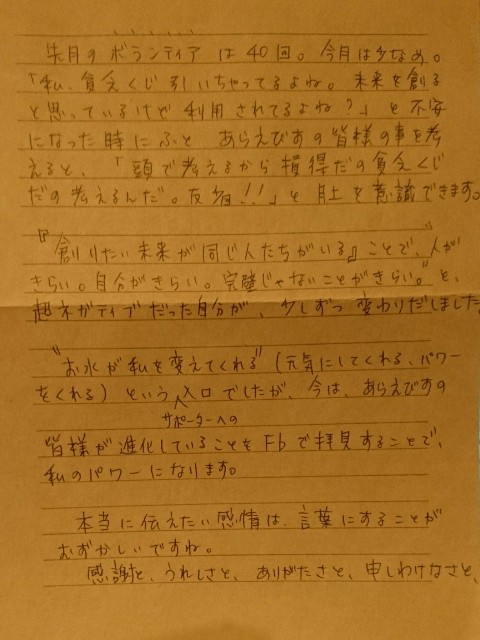 先月のボランティアは40回。今月は少なめ。
「私、貧乏くじ引いちゃってるよね。未来を創る
と思っているけど利用されてるよね?」と不安
になった時にふと あらえびすの皆様の事を考
えると、「頭で考えるから損得だの貧乏くじ
だの考えるんだ。反省!!」と 肚を意識できます。
『創りたい未来が同じ人たちがいる』ことで、"人が
きらい。自分がきらい。完璧じゃないことがきらい。"と、
超ネガティブだった自分が、少しずつ変わりだしました
"お水が私を変えてくれる"(元気にしてくれる、パワー
をくれる)という入口でしたが、今は、あらえびすの
サポーターへの
皆様が進化していることをFbで拝見することで、
私のパワーになります。
本当に伝えたい感情は、言葉にすることが
むずかしいですね。
感謝と、うれしさと、ありがたさと、申しわけなさと、